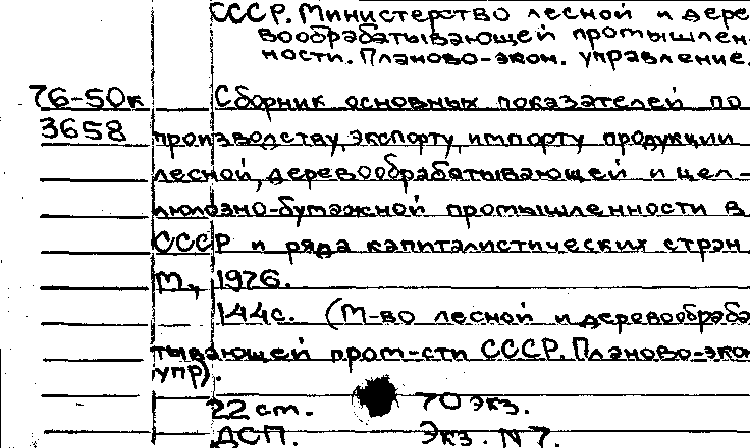 СССР. Министерство лесной и дере
вообрабатывающей промышлен-
ности. Планово-экон. управление.
76-50к Сборник основных показателей по
3658 производству, экспорту, импорту продукции
лесной, деревообрабатывающей и цел-
люлозно-бумажной промышленности в
СССР и ряда капиталистических стран
М., 1976.
144с. (М-во лесной и деревообраба
тывающей пром-сти СССР. Планово-эко
упр).
22 ст. 70 экз.
ДСП. Экз. N 7.